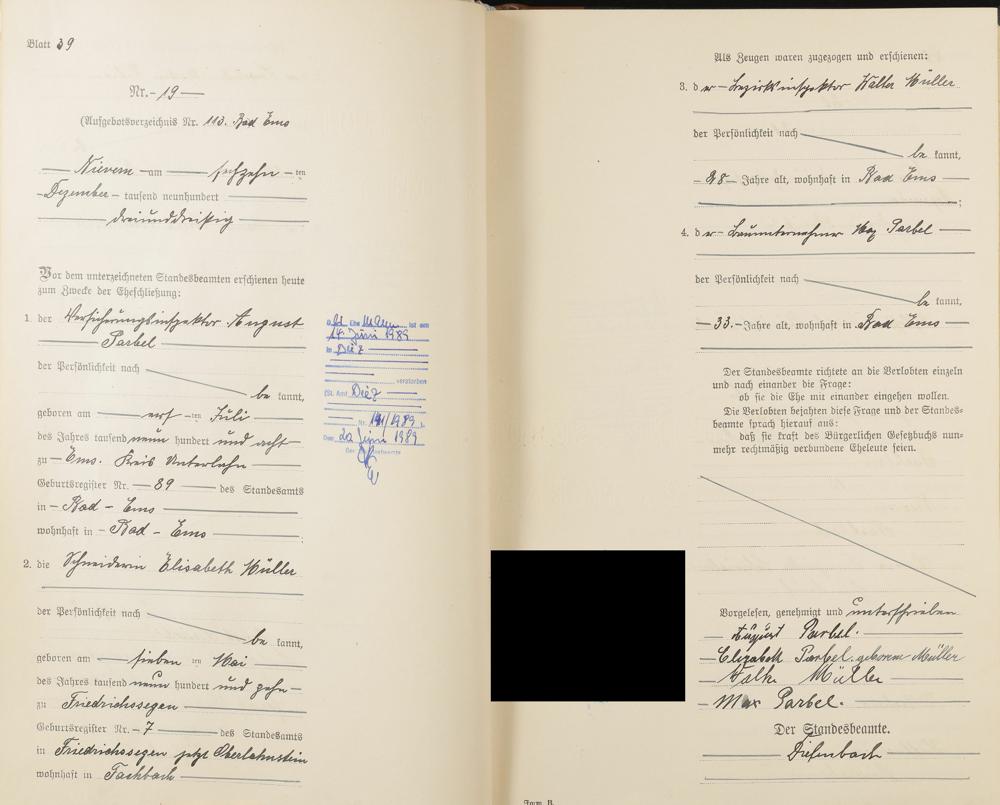 Blatt 39
Nr. 19
(Aufgebotsverzeichnis Nr. 113. Bad Ems
Nievern am sechzehn ten
Dezember tausend neunhundert
dreiunddreißig
Vor dem unterzeichneten Standesbeamten erschienen heute
zum Zwecke der Eheschließung:
1. der Versicherungsinspektor August
Parbel
der Persönlichkeit nach
be kannt,
geboren am elf ten Juli
des Jahres tausend neun hundert und acht
zu Ems. Kreis Unterlahn
Geburtsregister Nr. 89 des Standesamts
in Bad-Ems
wohnhaft in Bad-Ems
2. die Schneiderin Elisabeth Müller
der Persönlichkeit nach
be kannt,
geboren am sieben ten Mai
des Jahres tausend neun hundert und zehn
zu Friedrichssegen
Geburtsregister Nr. 7 des Standesamts
in Friedrichssegen jetzt Oberlahnstein
wohnhaft in Fachbach
ist am
14. Juni 1989
in Diez
verstorben
(St. Amt Diez
Nr. 141/1989
Diez, 20 Juni 1989
Der Standesbeamte
Als Zeugen waren zugezogen und erschienen:
3. der Bezirksinspektor Walter Müller
der Persönlichkeit nach
be kannt,
28 Jahre alt, wohnhaft in Bad Ems
4. der Bauunternehmer Max Parbel
der Persönlichkeit nach
be kannt,
33. Jahre alt, wohnhaft in Bad Ems
Der Standesbeamte richtete an die Verlobten einzeln
und nach einander die Frage:
ob sie die Ehe mit einander eingehen wollen.
Die Verlobten bejahten diese Frage und der Standes-
beamte sprach hierauf aus:
daß sie kraft des Bürgerlichen Gesetzbuchs nun-
mehr rechtmäßig verbundene Eheleute seien.
Vorgelesen, genehmigt und unterschrieben
August Parbel.
Elisabeth Parbel geborene Müller
Müller
Max Parbel.
Der Standesbeamte.
Diefenbach